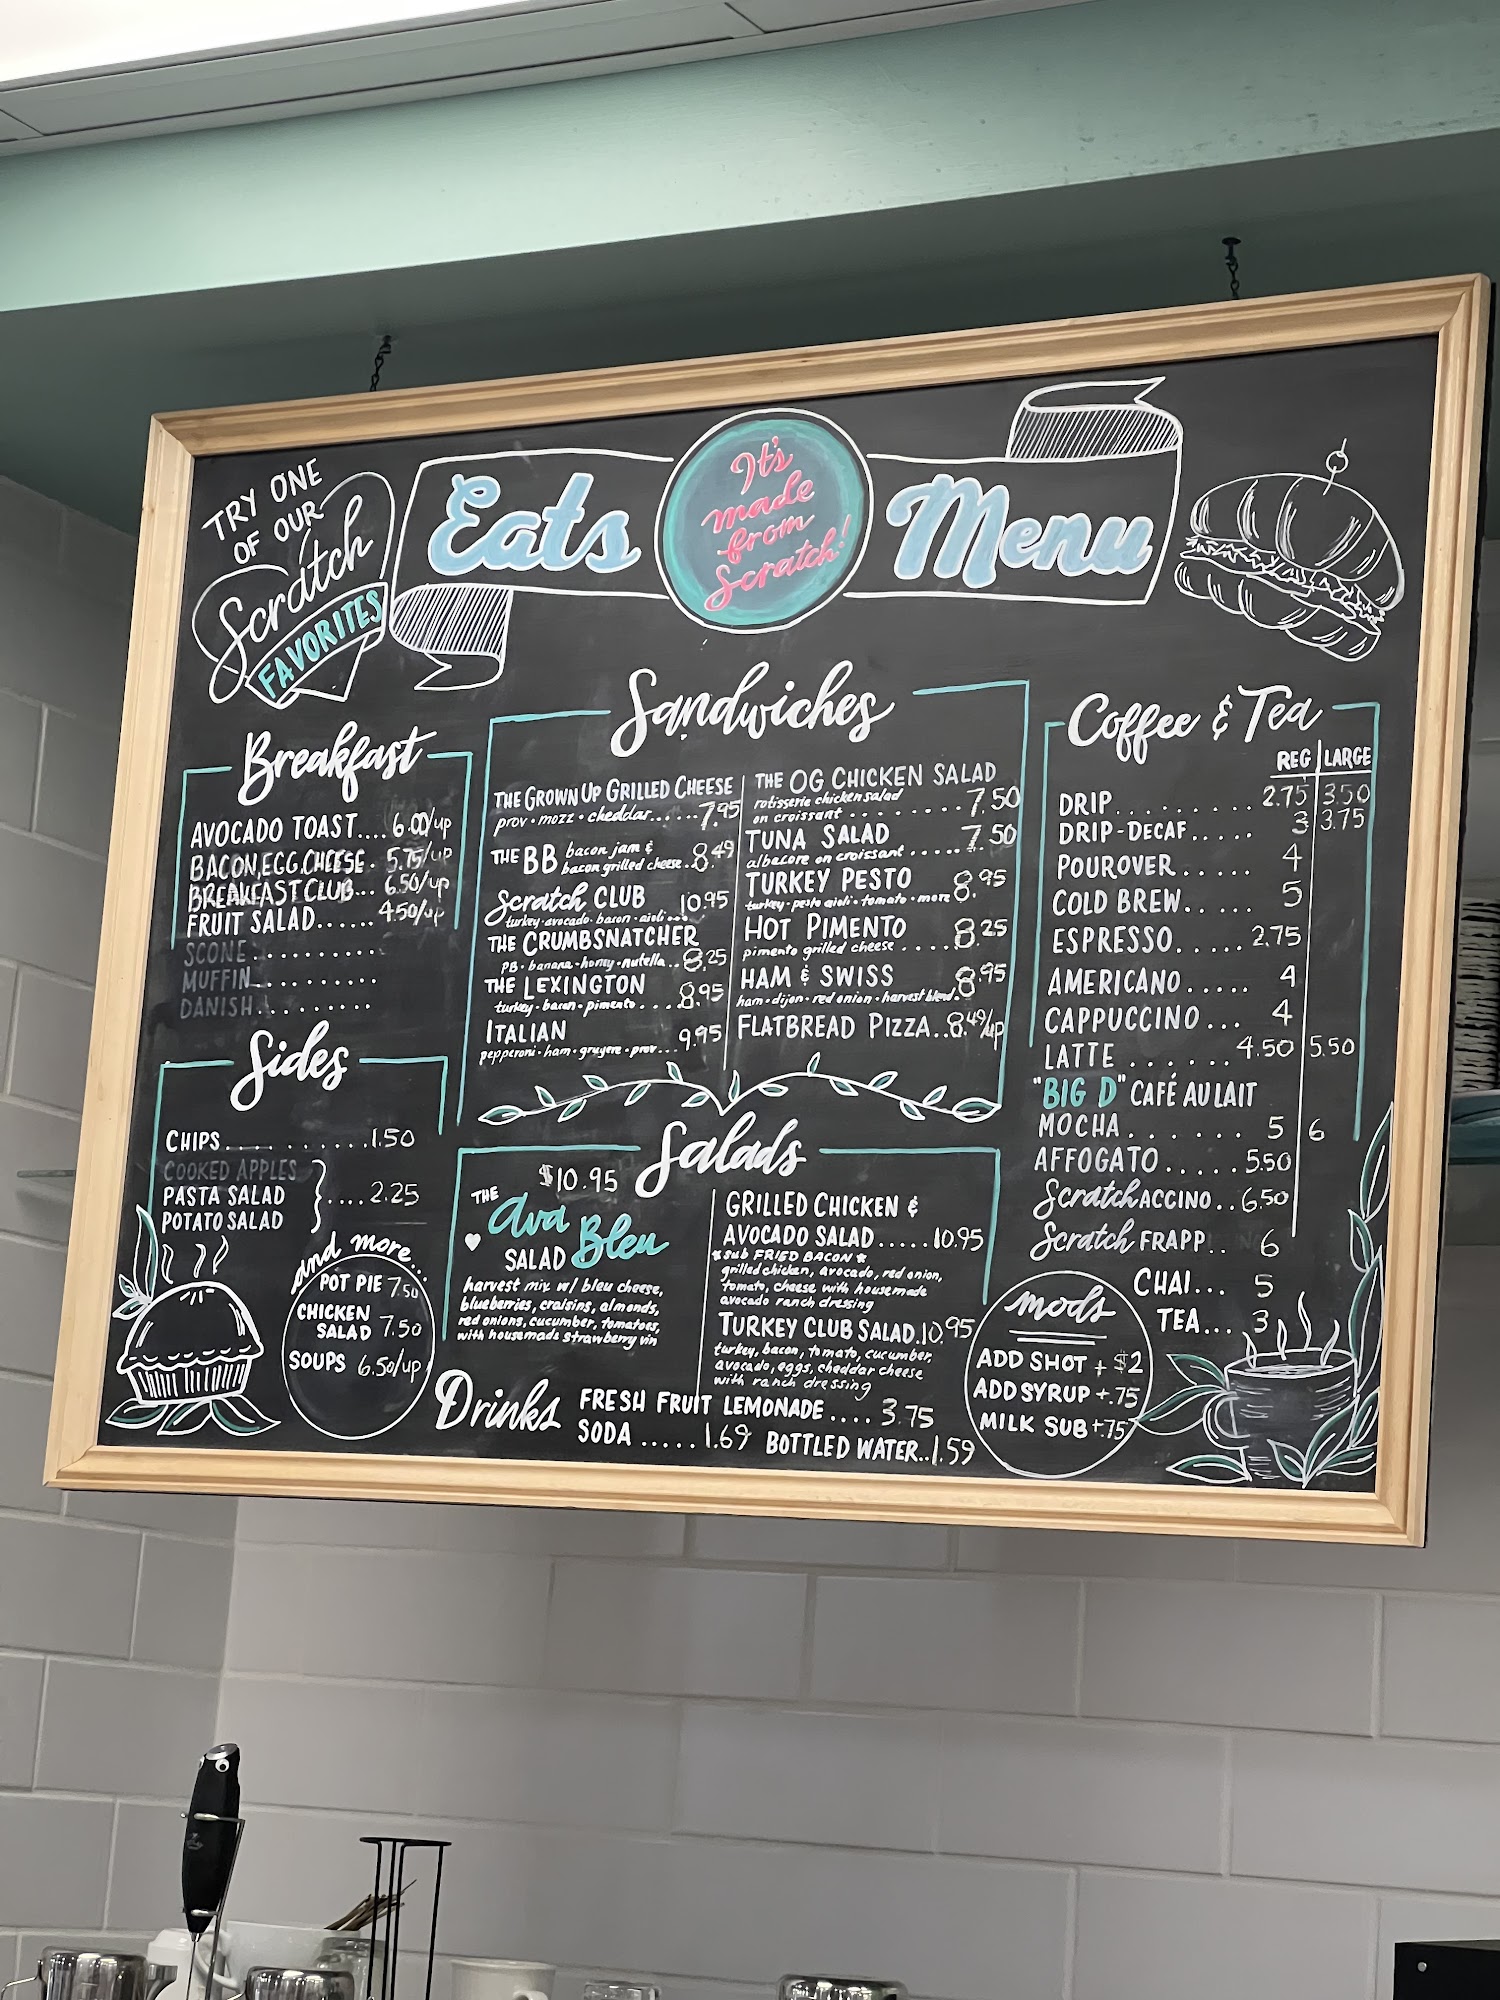 TRY ONE
OF OUR
Scratch
FAVORITES
Eats
It's
made
from
Scratch!
Menu
Breakfast
AVOCADO TOAST.... 6.00/up
BACON, EGG, CHEESE. 5.75/up
BREAKFAST CLUB... 6.50/up
FRUIT SALAD...... 4.50/up
SCONE..........
MUFFIN.........
DANISH.........
Sides
CHIPS.... .......1.50
COOKED APPLES
PASTA SALAD
POTATO SALAD
}....2.25
and more...
POT PIE 7.50
CHICKEN
SALAD 7.50
SOUPS 6.50/up
Sandwiches
THE GROWN UP GRILLED CHEESE
prov • mozz • cheddar......7.95
THE BB bacon jam &
bacon grilled cheese..8.49
Scratch CLUB 10.95
turkey • avocado • bacon • aioli...
THE CRUMBSNATCHER
PB • banana • honey • nutella..8.25
THE LEXINGTON
turkey • bacon • pimento....8.95
ITALIAN
pepperoni • ham • gruyere • prov...9.95
THE OG CHICKEN SALAD
rotisserie chicken salad
on croissant.......7.50
TUNA SALAD
albacore on croissant.....7.50
TURKEY PESTO
turkey • pesto aioli • tomato • more 8.95
HOT PIMENTO
pimento grilled cheese....8.25
HAM & SWISS
ham • dijon • red onion • harvest blend.8.95
FLATBREAD PIZZA..8.49/up
Salads
$10.95
THE
Ava
SALAD Bleu
harvest mix w/ bleu cheese,
blueberries, craisins, almonds,
red onions, cucumber, tomatoes,
with housemade strawberry vin
GRILLED CHICKEN &
AVOCADO SALAD.....10.95
*sub FRIED BACON*
grilled chicken, avocado, red onion,
tomato, cheese with housemade
avocado ranch dressing
TURKEY CLUB SALAD.10.95
turkey, bacon, tomato, cucumber,
avocado, eggs, cheddar cheese
with ranch dressing
Drinks
FRESH FRUIT LEMONADE.... 3.75
SODA.....1.69 BOTTLED WATER..1.59
Coffee & Tea
REG LARGE
DRIP......... 2.75 3.50
DRIP-DECAF..... 3 3.75
POUROVER..... 4
COLD BREW..... 5
ESPRESSO.....2.75
AMERICANO.... 4
CAPPUCCINO... 4
LATTE.......4.50 5.50
"BIG D" CAFÉ AU LAIT
MOCHA....... 5 6
AFFOGATO.....5.50
ScratchACCINO..6.50
Scratch FRAPP.. 6
CHAI... 5
TEA... 3
mods
ADD SHOT + $2
ADD SYRUP +.75
MILK SUB +.75